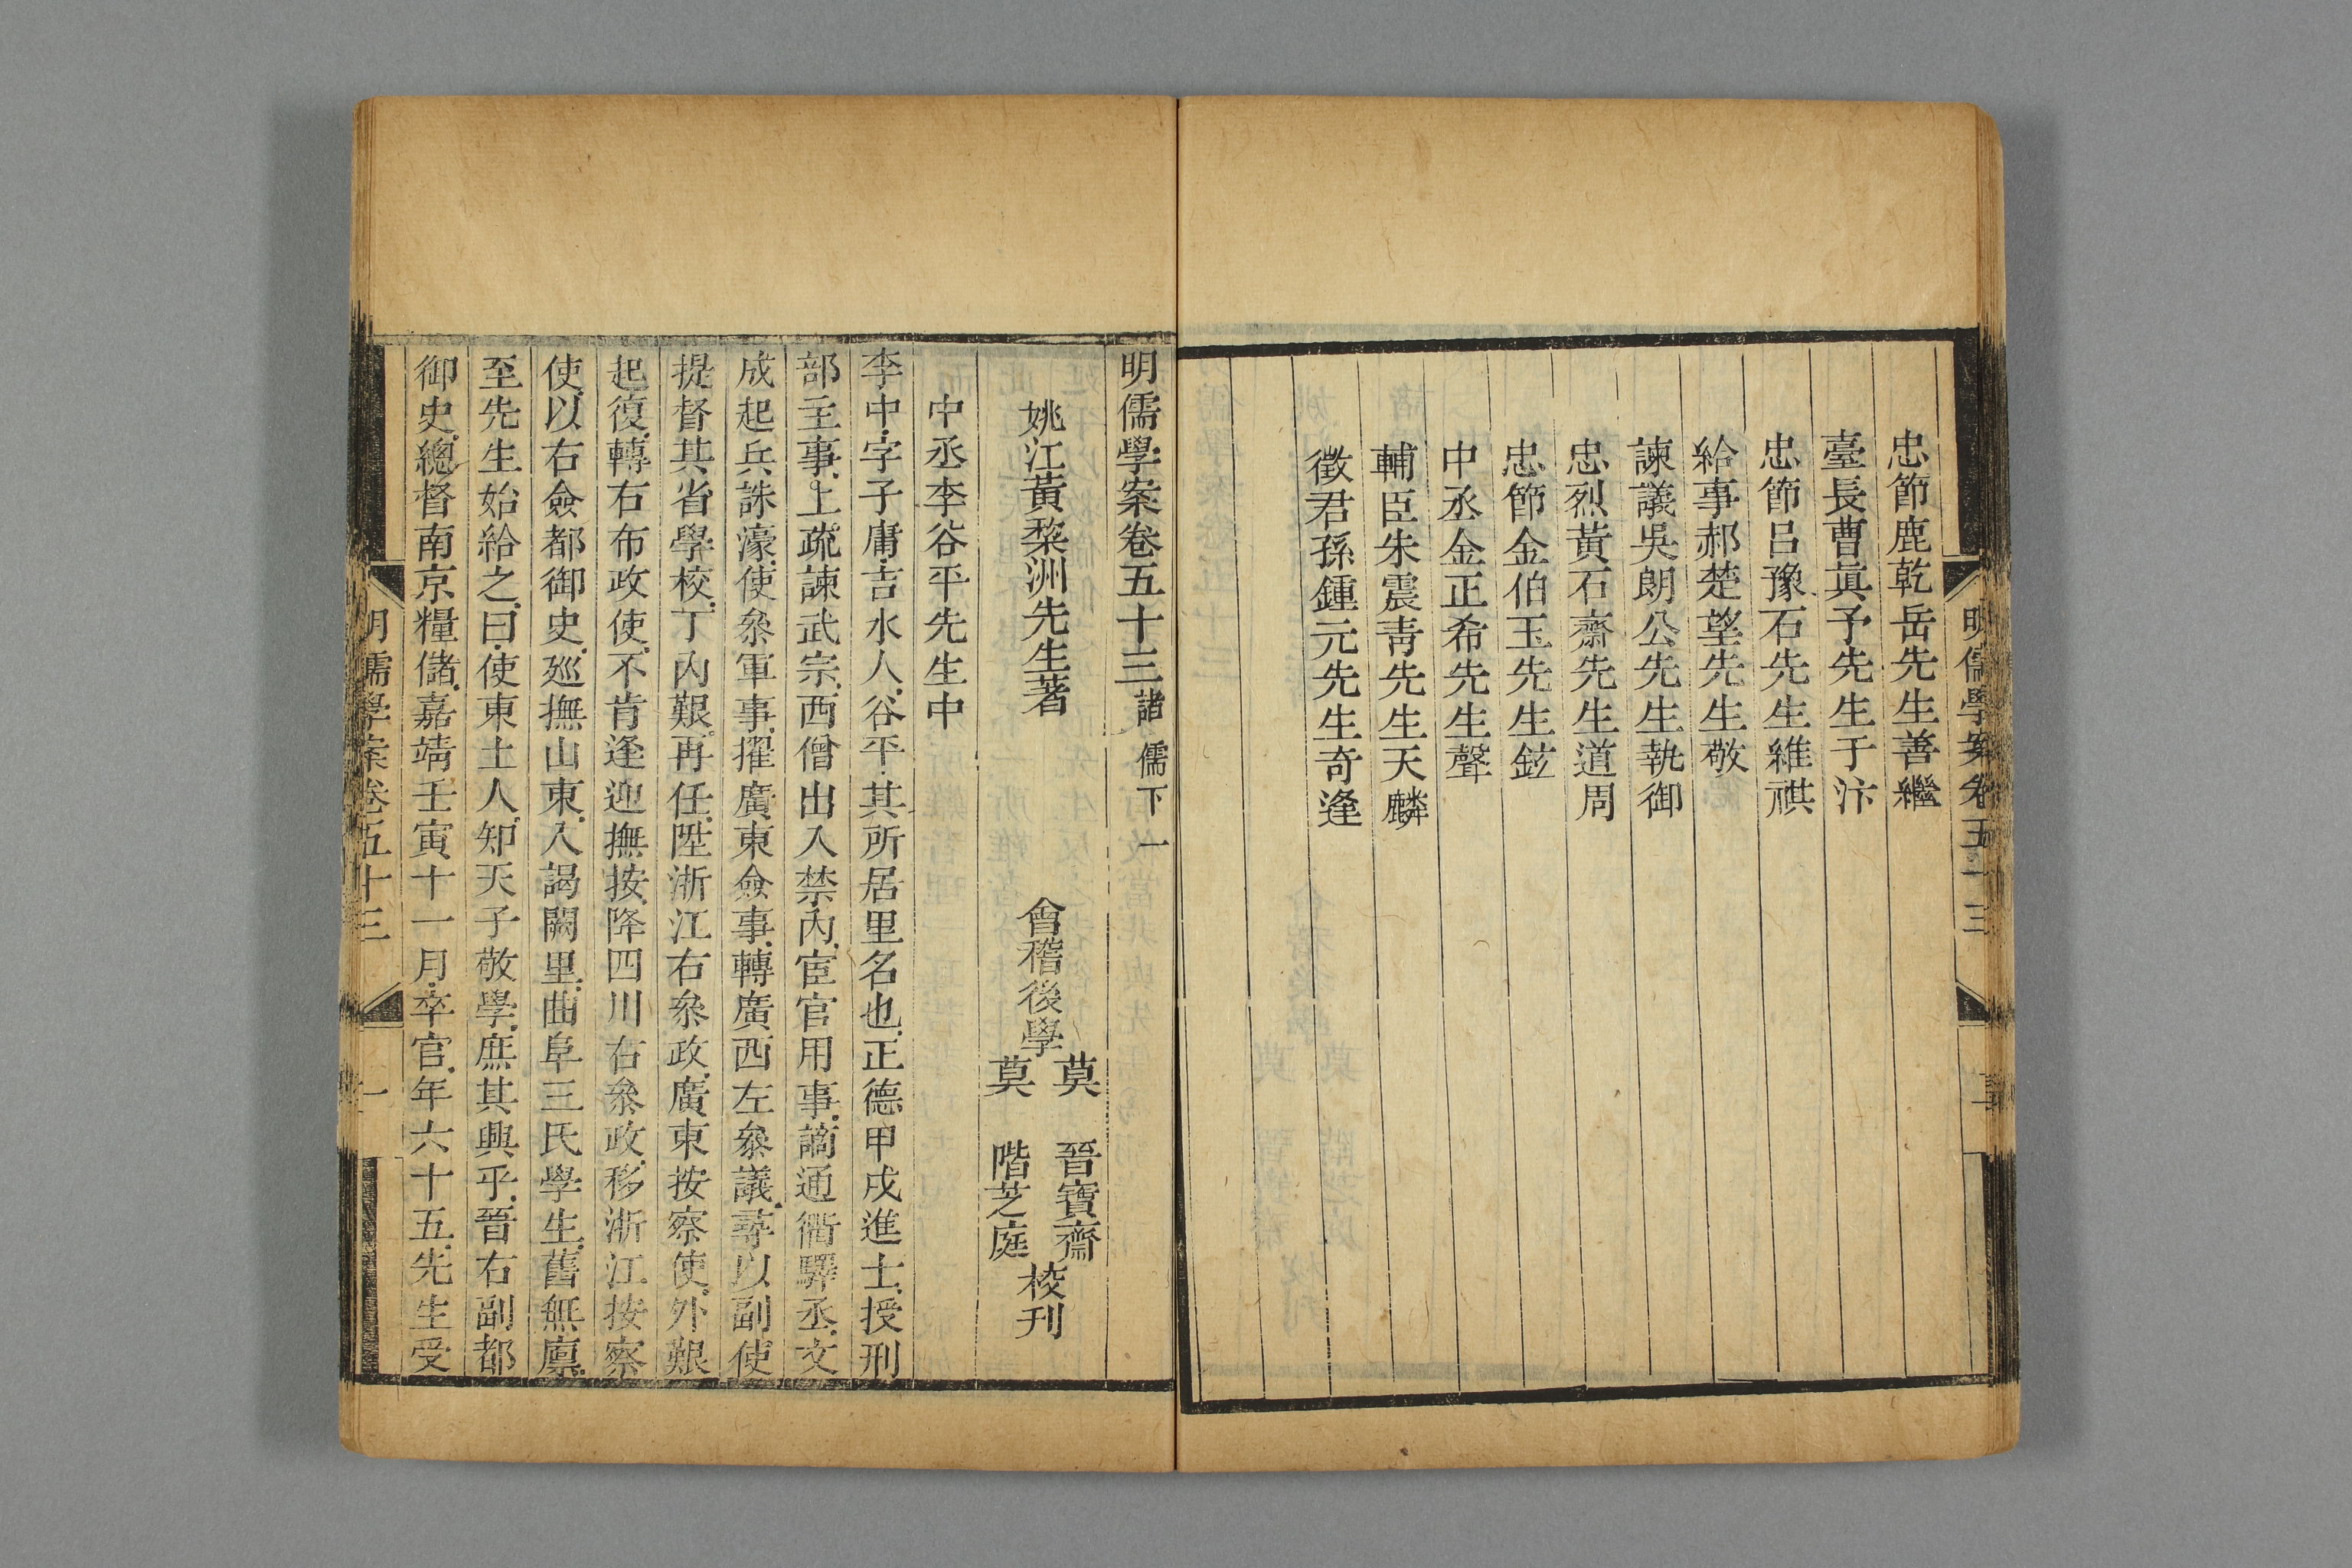 明儒學案卷五十三
忠節鹿乾岳先生善繼
臺長曹眞予先生于汴
忠節呂豫石先生維祺
給事郝楚望先生敬
諫議吳朗公先生執御
忠烈黃石齋先生道周
忠節金伯玉先生鉉
中丞金正希先生聲
輔臣朱震靑先生天麟
徵君孫鍾元先生奇逢
明儒學案卷五十三 諸儒下一
姚江黃棃洲先生著
會稽後學
莫晉寶齋
莫階芝庭
校刊
中丞李谷平先生中
李中字子庸吉水人谷平其所居里名也正德甲戌進士授刑
部主事上疏諫武宗西僧出入禁內宦官用事謫通衢驛丞文
成起兵誅濠使叅軍事擢廣東僉事轉廣西左叅議尋以副使
提督其省學校丁內艱再任陞浙江右叅政廣東按察使外艱
起復轉右布政使不肯逢迎撫按降四川右叅政移浙江按察
使以右僉都御史廵撫山東入謁闕里曲阜三氏學生舊無廩
至先生始給之曰使東土人知天子敬學庶其興乎晉右副都
御史總督南京糧儲嘉靖壬寅十一月卒官年六十五先生受
明儒學案卷五十三
一